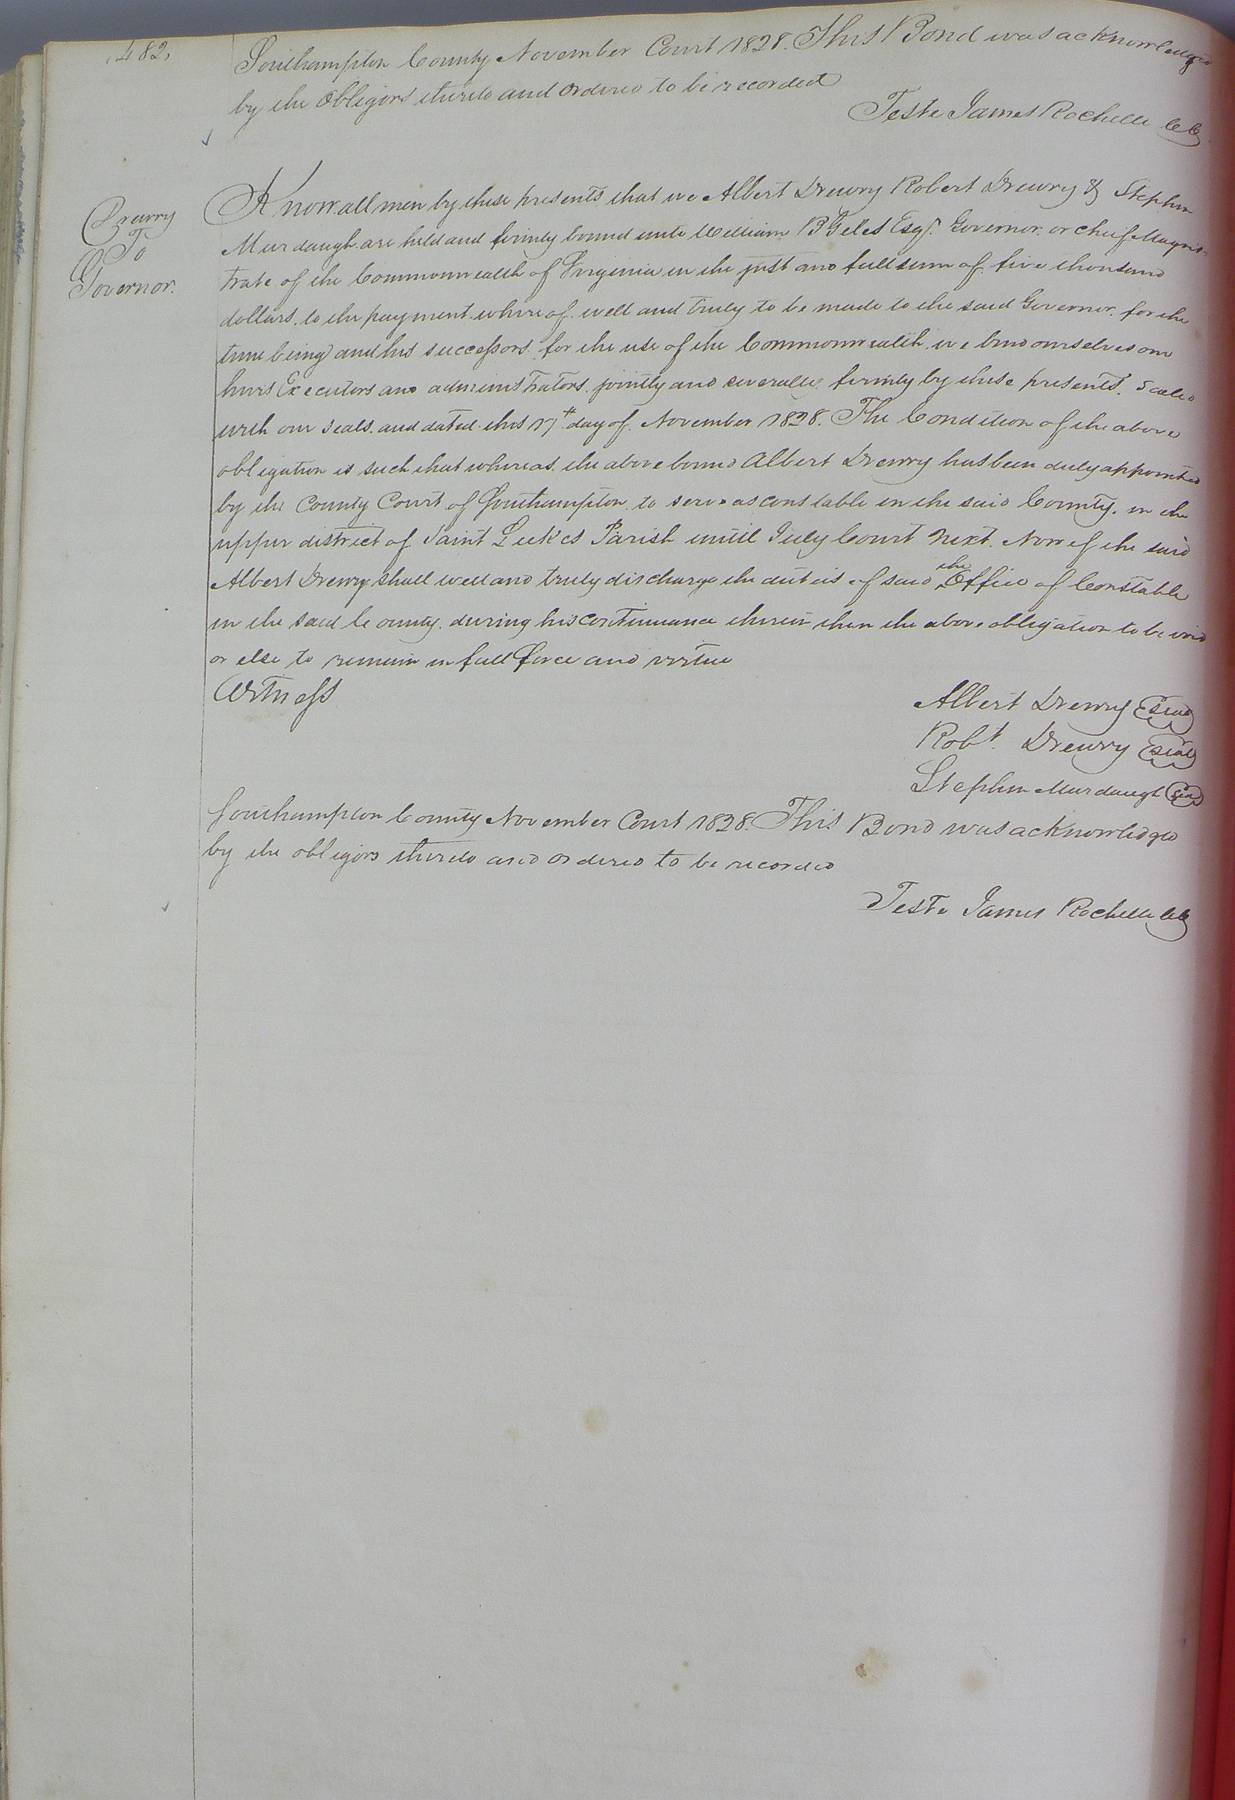 482,
Southampton County November Court 1828. This Bond was acknowledged
by the Obligors thereto and ordered to be recorded
Teste James Rochelle CC
Drewry
To
Governor.
Know all men by these presents that we Albert Drewry Robert Drewry & Stephen
Murdaugh are held and firmly bound unto William B Giles Esqr. Governor or chief Magis-
trate of the Commonwealth of Virginia in the just and full sum of five thousand
dollars. to the payment where of well and truly to be made to the said Governor for the
time being and his successors for the use of the Commonwealth we bind ourselves our
heirs Executors and administrators jointly and severally firmly by these presents. Sealed
with our seals and dated this 17th day of November 1828. The Condition of the above
obligation is such that whereas the above bound Albert Drewry has been duly appointed
by the County Court of Southampton to serve as constable in the said County in the
upper district of Saint Luke's Parish until July Court next. Now if the said
Albert Drewry shall well and truly discharge the duties of said the Office of Constable
in the said County during his continuance therein then the above obligation to be void
or else to remain in full force and virtue
Witness
Albert Drewry Seal
Robt. Drewry Seal
Stephen Murdaugh Seal
Southampton County November Court 1828. This Bond was acknowledged
by the obligors thereto and ordered to be recorded
Teste James Rochelle CC